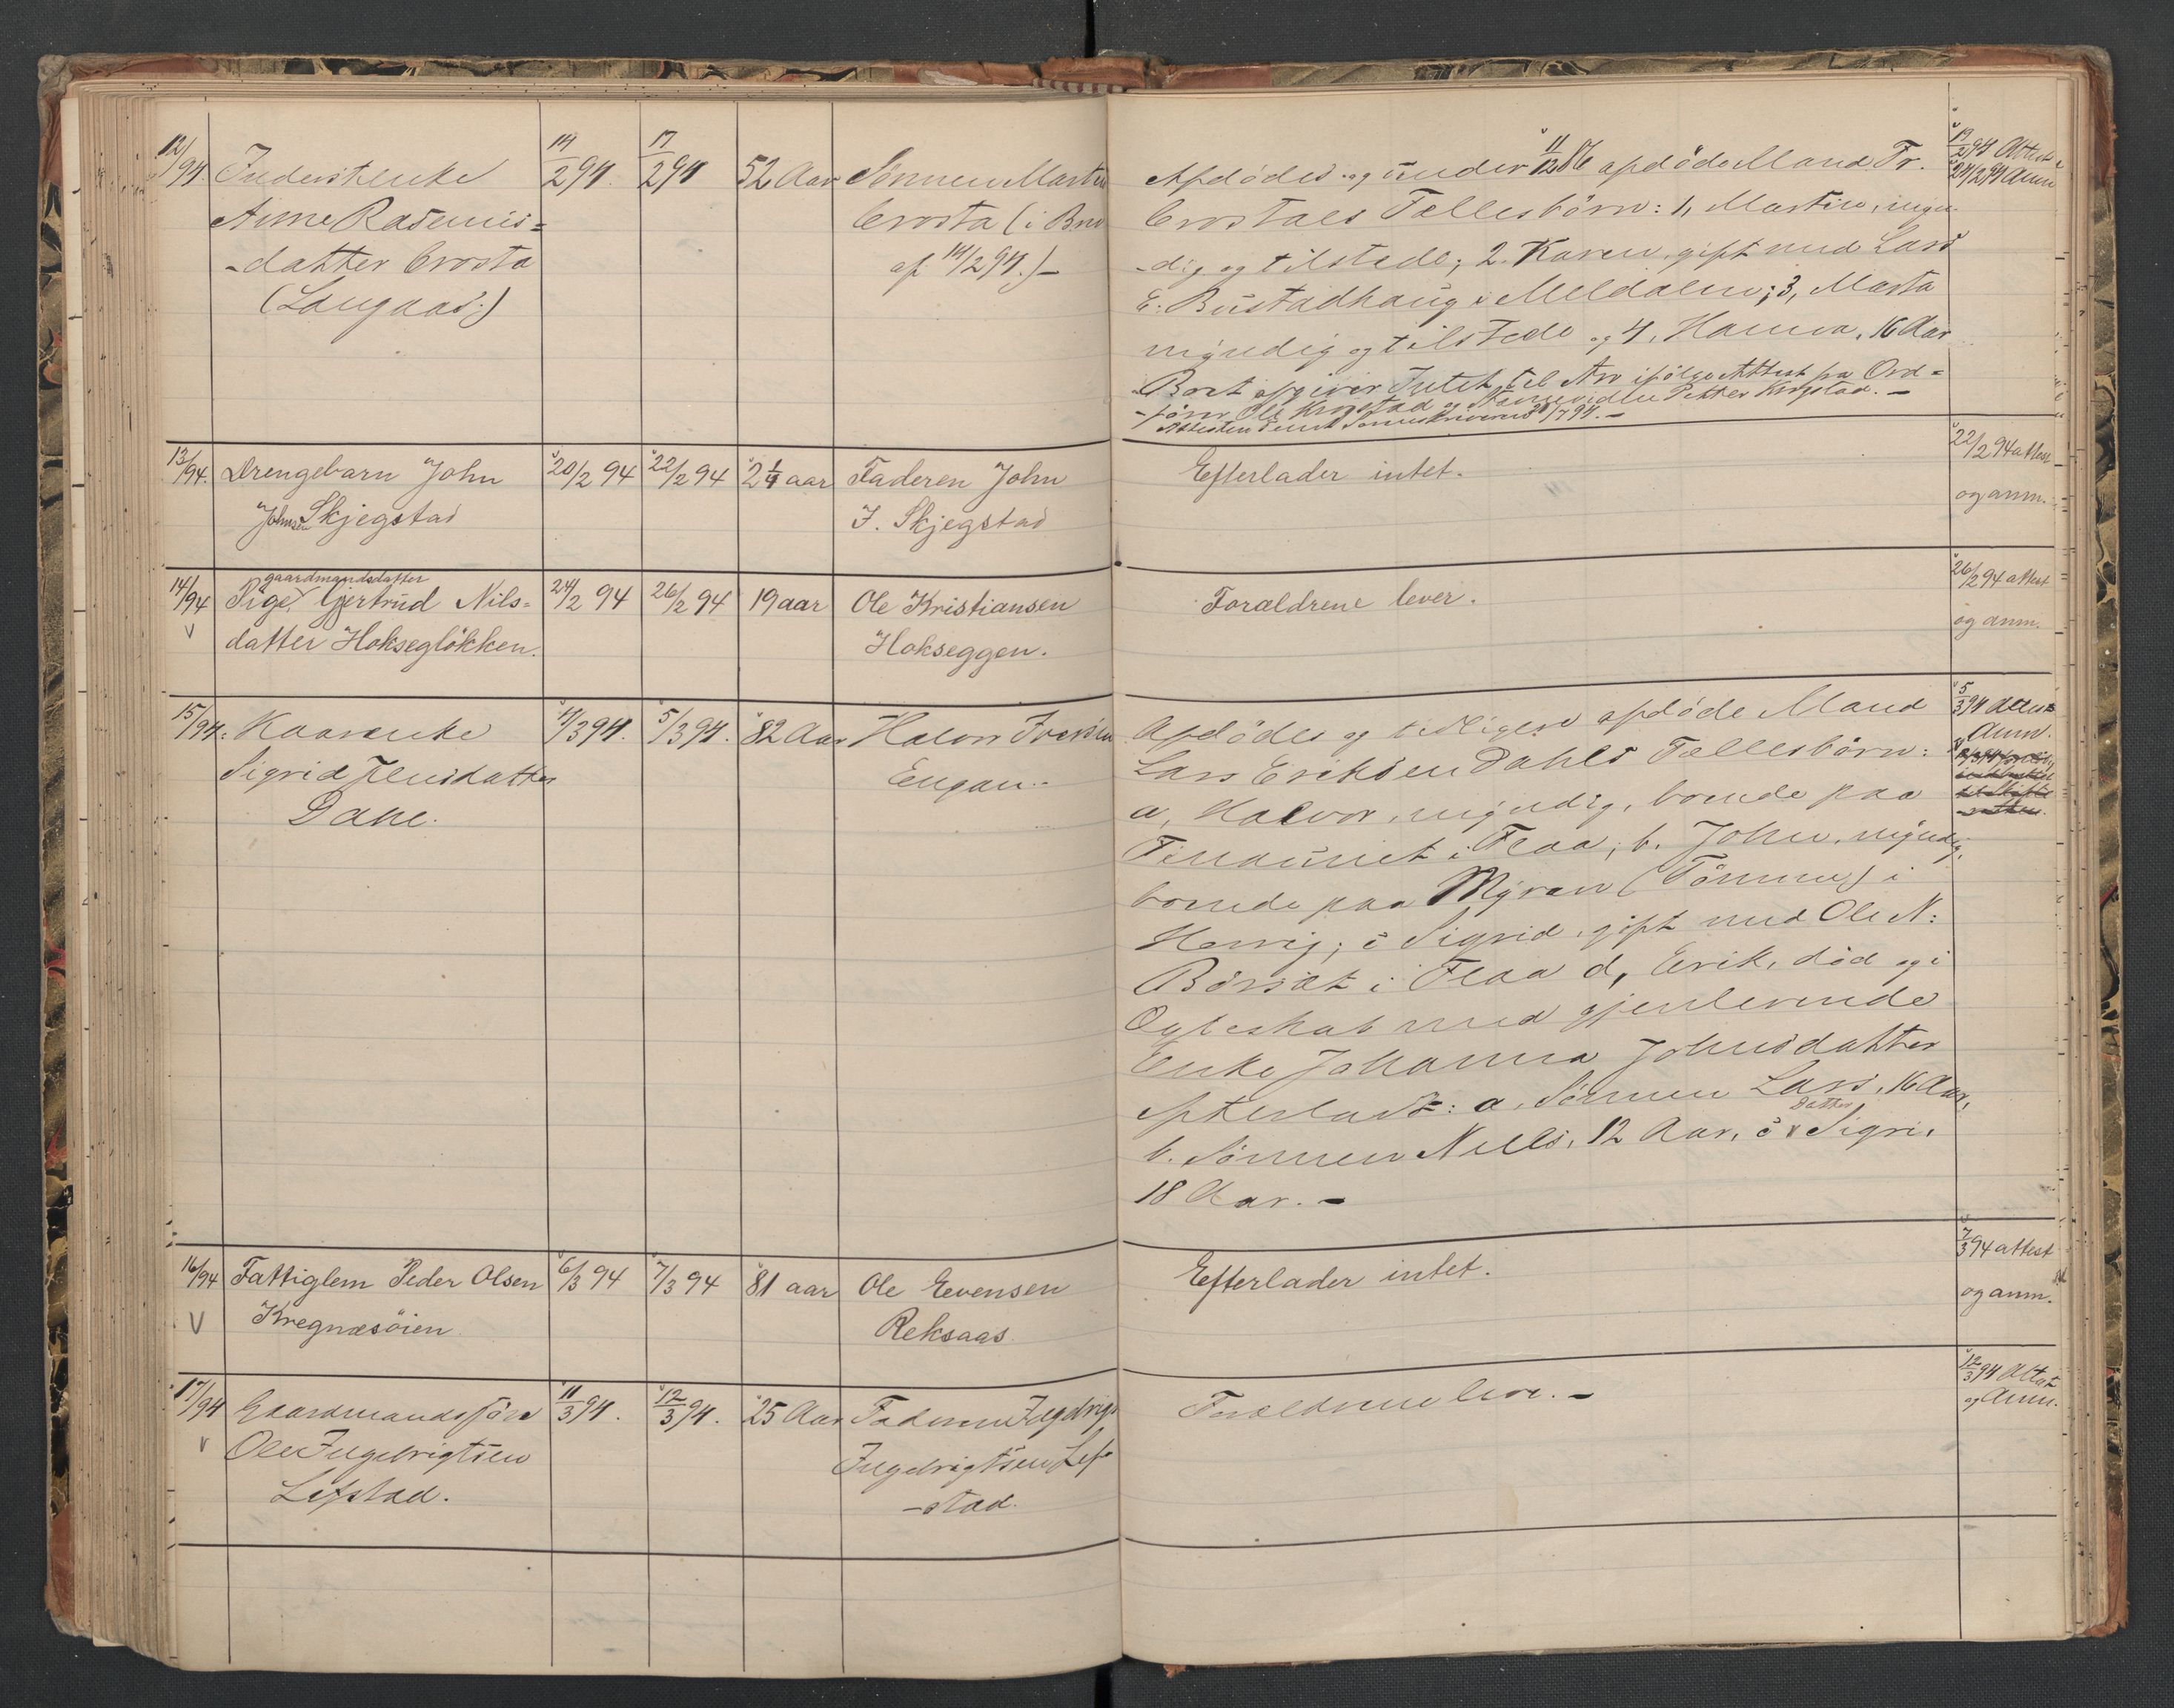 12/94. Inderstenke
Anne Rasmus=
-datter Crosta
(Langaas.)
14/2 94.
17/2 94
52 Aar
Sønnen Martin
Crosta (i Brev
af 14/2 94.)-
Afdødes og under 11/12 86 afdøde Mand Fr.
Crostads Fællesbörn: 1, Martin, myn-
-dig og tilstede; 2. Karen, gift med Lars
E. Bustadhaug i Meldalen; 3, Marta
myndig og tilstede og 4, Hanna, 16 Aar
Boet opgiver Intet til Arv ifölge Attest fra Ord=
-förer Ole Krogstad og Petter Krogstad. -
Attesten sendt Sorenskriveren /7 94. -
17/2 94 Attest
24/2 94 Anm
13/94. Drengebarn John
Johnsen Skjegstad
20/2 94
22/2 94
2 1/4 aar
Faderen John
J. Skjegstad
Efterlader intet.
22/2 94 attest
og anm.
14/94 gaardmandsdatter
Pige Gjertrud Nils=
datter Hokseglökken.
24/2 94
26/2 94
19 aar
Ole Kristiansen
Hokseggen.
Forældrene lever.
26/2 94 attest
og anm.
15/94. Kaarenke
Sigrid Jensdatter
Dahl.
4/3 94.
5/3 94.
82 Aar
Halvor Iversen
Engan.
Afdödes og tidligere afdöde Mand
Lars Eriksen Dahls Fællesbörn:
a, Halvor, myndig, boende paa
i Flaa; b. John, myndig,
boende paa Myran (Tömme) i
Hovig; c Sigrid, gift med Ole N.
Börset i Flaa d, Erik, död og i
Egteskab med gjenlevende
Enke Johanna Johnsdatter
efterladt: a, Sönnen Lars, 16 Aar,
b. Sönnen Nils, 12 Aar, c Datter Sigri,
18 Aar. -
5/3 94 Attest
Anm.
16/94 Fattiglem Peder Olsen
Kregnæsöien
6/3 94
7/3 94
81 aar
Ole Evensen
Reksaas
Efterlader intet.
7/3 94 attest
og anm.
17/94 Gaardmandssön
Ole Ingebrigtsen
Lefstad.
11/3 94.
12/3 94.
25 Aar
Faderen Ingebrigt
Ingebrigtsen Lef
-stad.
Forældrene lever. -
12/3 94 Attest
og Anm.